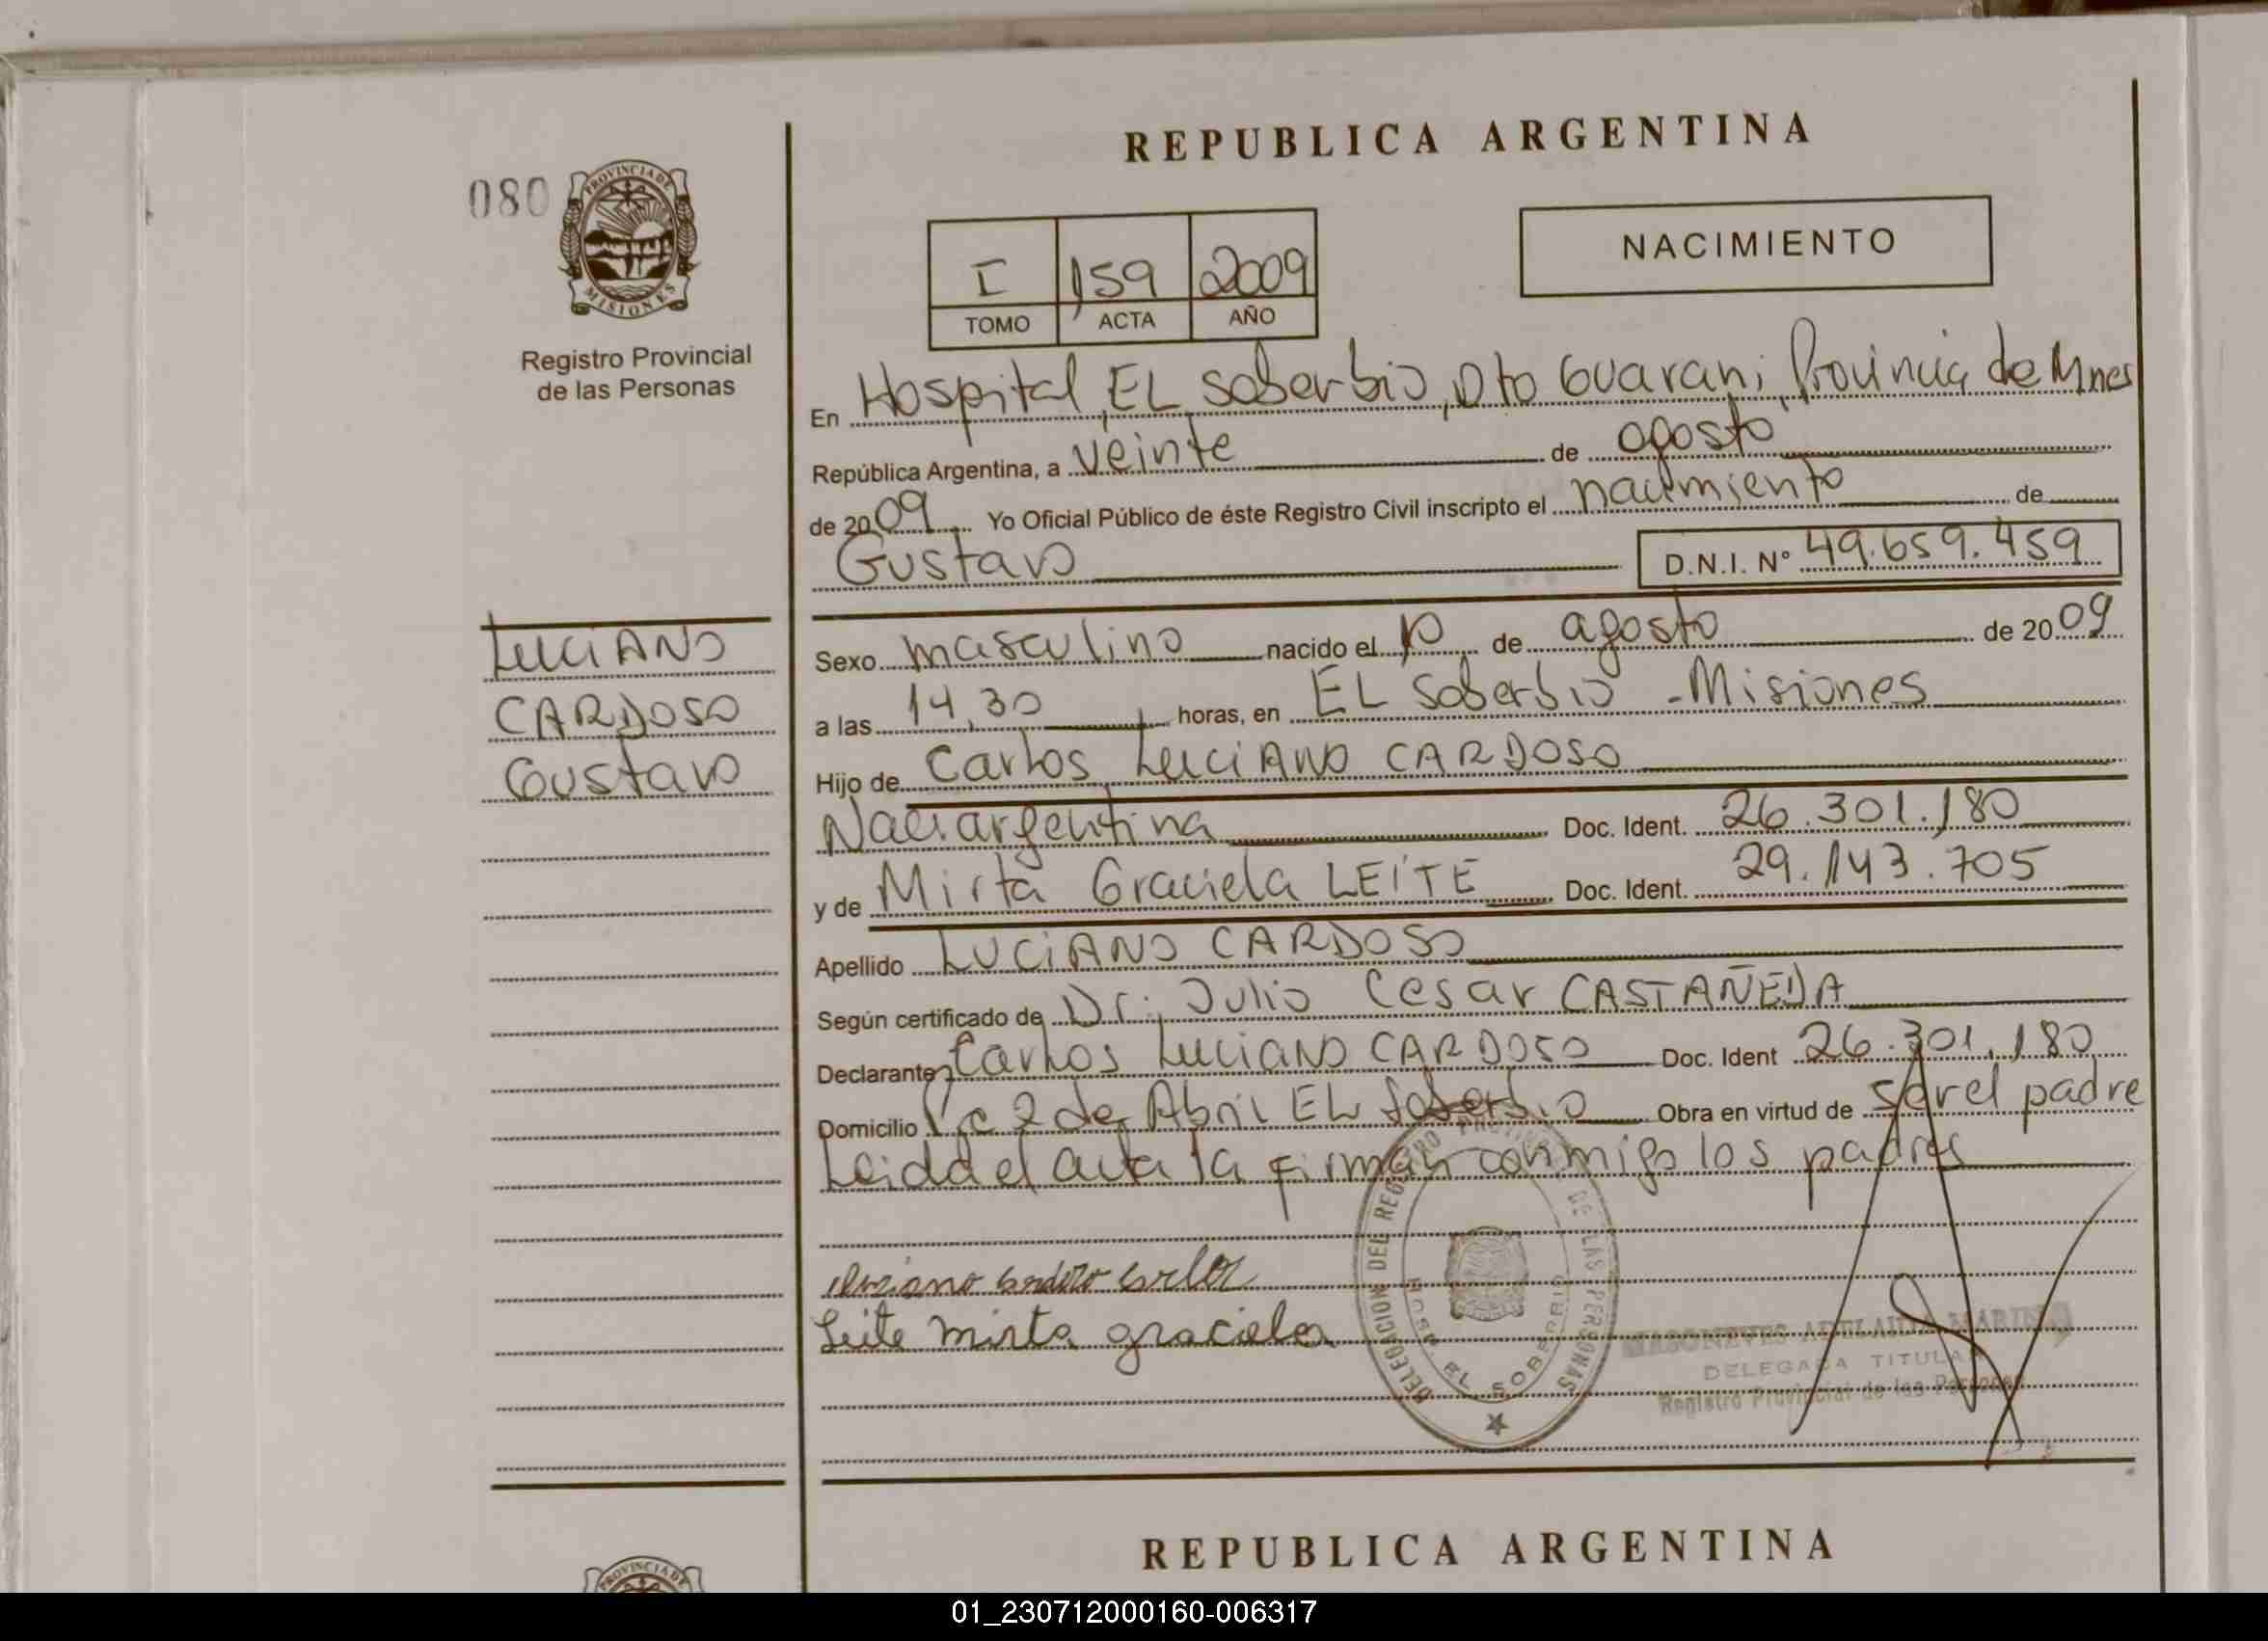 REPUBLICA ARGENTINA
080
PROVINCIA DE
MISIONES
Registro Provincial
de las Personas
I 159 2009
TOMO ACTA AÑO
NACIMIENTO
En Hospital, EL Soberbio, Dto Guarani, Provincia de Mnes
República Argentina, a veinte de agosto
de 2009 Yo Oficial Público de éste Registro Civil inscripto el nacimiento de
Gustavo D.N.I. Nº 49.659.459
LUCIANO
CARDOSO
Gustavo
Sexo masculino nacido el 10 de agosto de 2009
a las 14,30 horas, en EL Soberbio - Misiones
Hijo de Carlos LUCIANO CARDOSO
Nac: argentina Doc. Ident. 26.301.180
y de Mirta Graciela LEITE Doc. Ident. 29.143.705
Apellido LUCIANO CARDOSO
Según certificado de Dr: Julio Cesar CASTAÑEDA
Declarante Carlos LUCIANO CARDOSO Doc. Ident 26.301.180
Domicilio 2 de Abril EL Soberbio Obra en virtud de ser el padre
Leida el acta la firman conmigo los padres
Luciano Cardozo Carlos
Leite mirta graciela
DELEGACION DEL REGISTRO PROVINCIAL DE LAS PERSONAS
HOSP. EL SOBERBIO
DELEGADA TITULAR
Registro Provincial de las Personas
REPUBLICA ARGENTINA
PROVINCIA DE
01_230712000160-006317